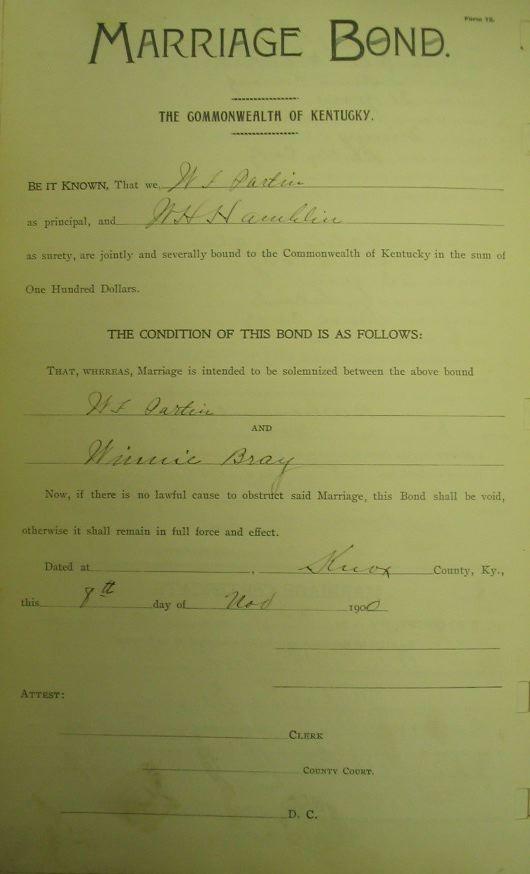 Form 72.
MARRIAGE BOND.
THE COMMONWEALTH OF KENTUCKY.
BE IT KNOWN, That we, W Partin
as principal, and W H Hamblin
as surety, are jointly and severally bound to the Commonwealth of Kentucky in the sum of
One Hundred Dollars.
THE CONDITION OF THIS BOND IS AS FOLLOWS:
THAT, WHEREAS, Marriage is intended to be solemnized between the above bound
W Partin
AND
Winnie Bray
Now, if there is no lawful cause to obstruct said Marriage, this Bond shall be void,
otherwise it shall remain in full force and effect.
Dated at , Knox County, Ky.,
this 8th day of Nov 1900
ATTEST:
CLERK
COUNTY COURT.
D. C.